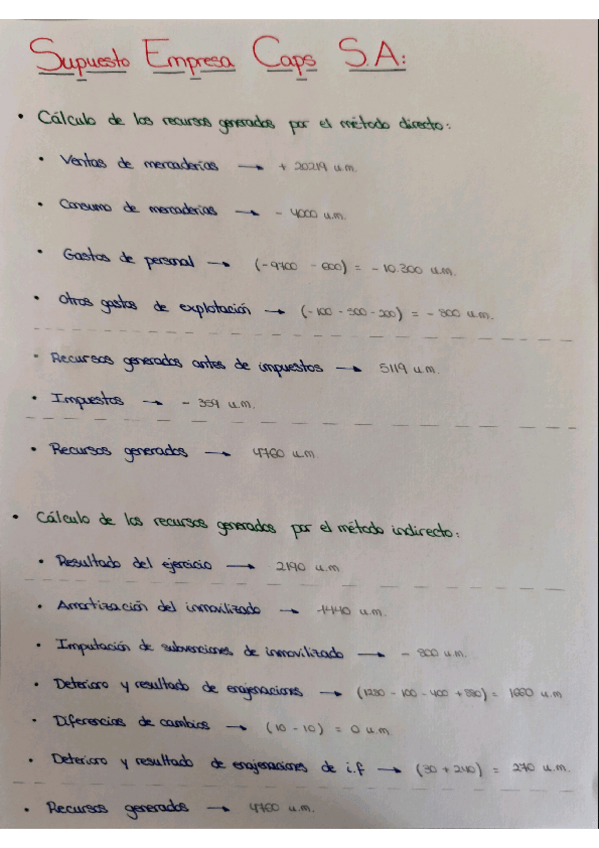 Supuesto Empresa Caps S.A:
• Cálculo de los recursos generados por el método directo:
• Ventas de mercaderías → + 20219 u.m.
• Consumo de mercaderías → - 4000 u.m.
• Gastos de personal → (-9700 - 600) = - 10.300 u.m.
• Otros gastos de explotación → (-100 - 500 - 200) = - 800 u.m.
• Recursos generados antes de impuestos → 5119 u.m.
• Impuestos → - 359 u.m.
• Recursos generados → 4760 u.m.
• Cálculo de los recursos generados por el método indirecto:
• Resultado del ejercicio → 2190 u.m
• Amortización del inmovilizado → 1440 u.m.
• Imputación de subvenciones de inmovilizado → - 800 u.m.
• Deterioro y resultado de enajenaciones → (1280 - 100 - 400 + 880) = 1660 u.m
• Diferencias de cambios → (10 - 10) = 0 u.m.
• Deterioro y resultado de enajenaciones de i.f → (30 + 240) = 270 u.m.
• Recursos generados → 4760 u.m.